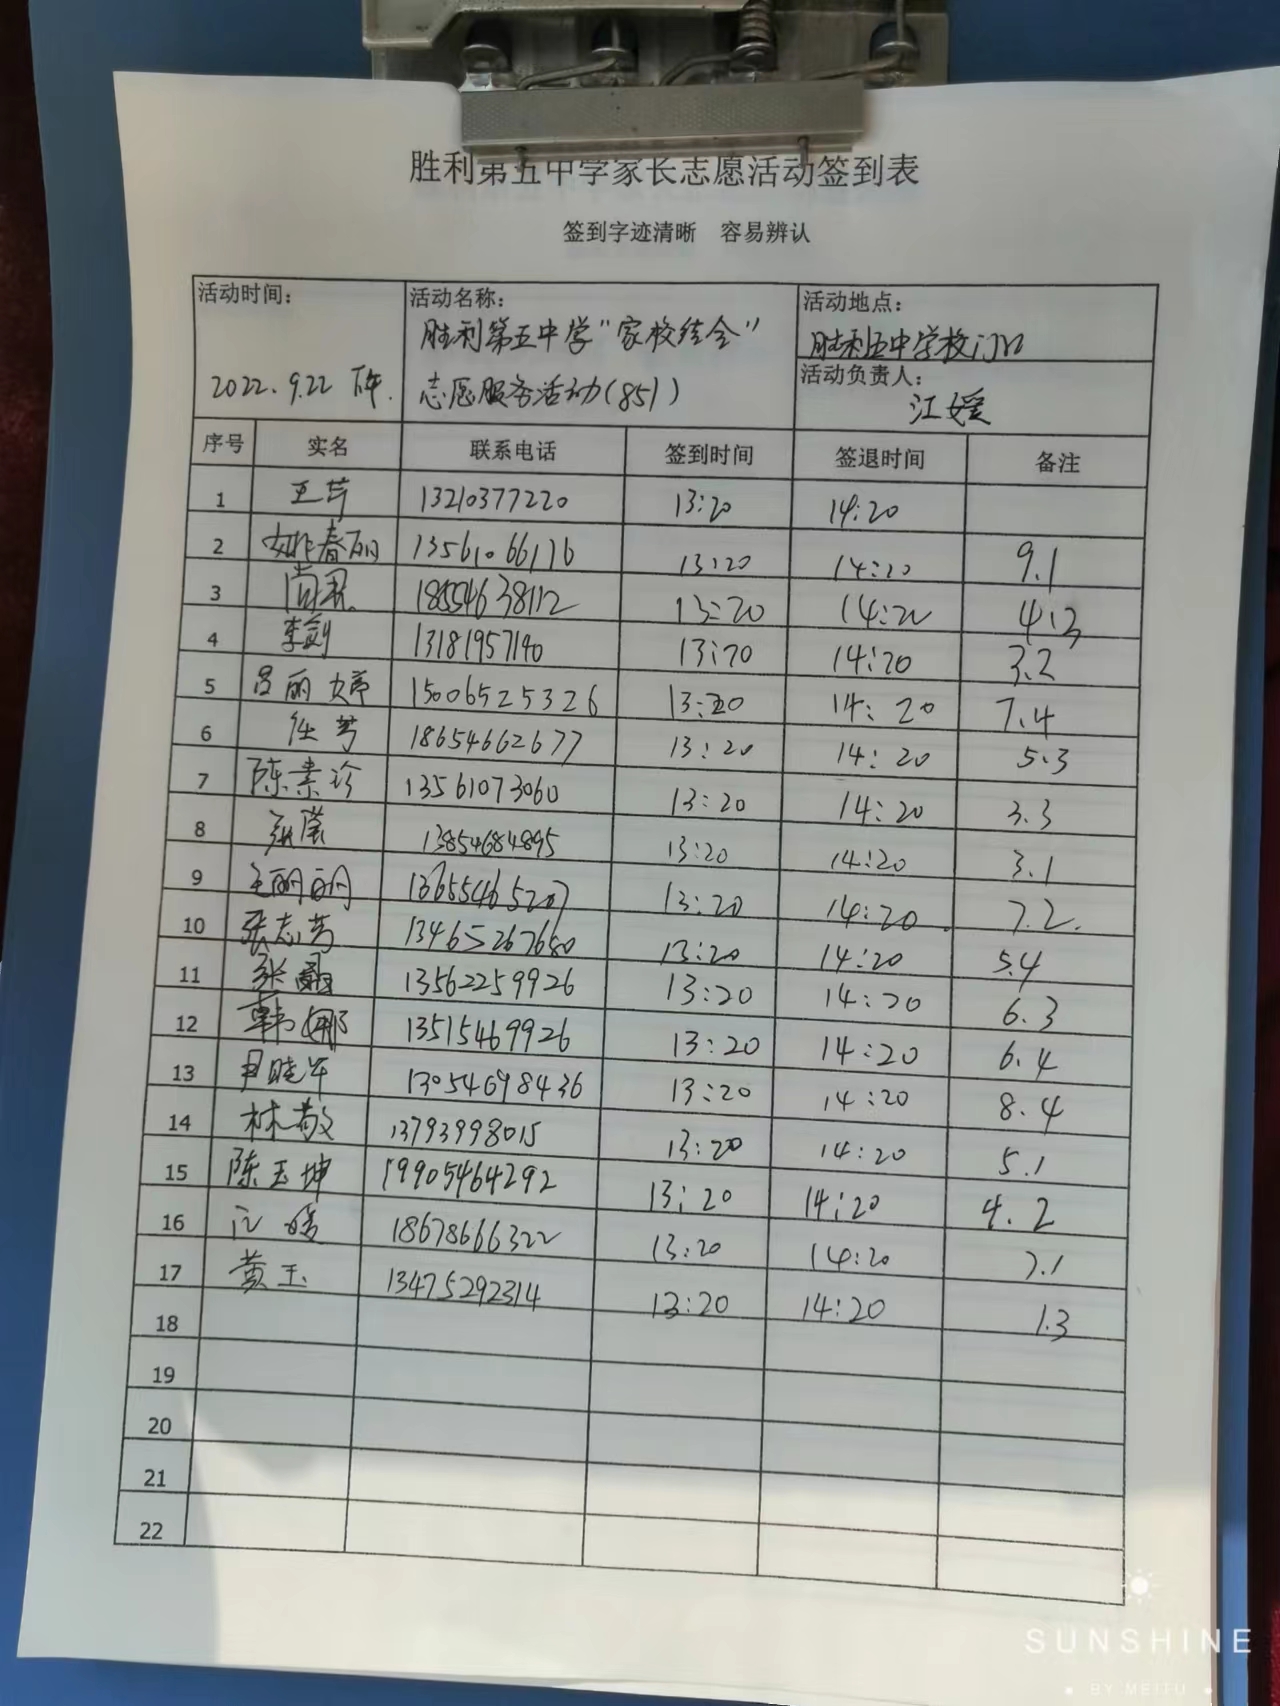 胜利第五中学家长志愿活动签到表
签到字迹清晰 容易辨认
活动时间: 活动名称: 活动地点:
胜利第五中学"家校结合" 胜利五中学校门口
2022.9.22 下午. 志愿服务活动(851) 活动负责人: 江媛
序号 实名 联系电话 签到时间 签退时间 备注
1 王芹 13210377220 13:20 14:20
2 春丽 13561066176 13:20 14:20 9.1
3 尚君 18554638112 13:20 14:20 4.3
4 李剑 13181957190 13:20 14:20 3.2
5 吕丽婷 15006525326 13:20 14:20 7.4
6 任芳 18654662677 13:20 14:20 5.3
7 陈素珍 13561073060 13:20 14:20 3.3
8 13854684895 13:20 14:20 3.1
9 王丽丽 13:20 14:20 7.2
10 张志芳 13465267680 13:20 14:20 5.4
11 张 13562259926 13:20 14:20 6.3
12 韩娜 13515469926 13:20 14:20 6.4
13 尹晓华 13054698436 13:20 14:20 8.4
14 林敬 13793998015 13:20 14:20 5.1
15 陈玉坤 19905464292 13:20 14:20 4.2
16 江媛 18678666322 13:20 14:20 7.1
17 黄玉 13475292314 13:20 14:20 1.3
18
19
20
21
22
SUNSHINE
BY MEITU